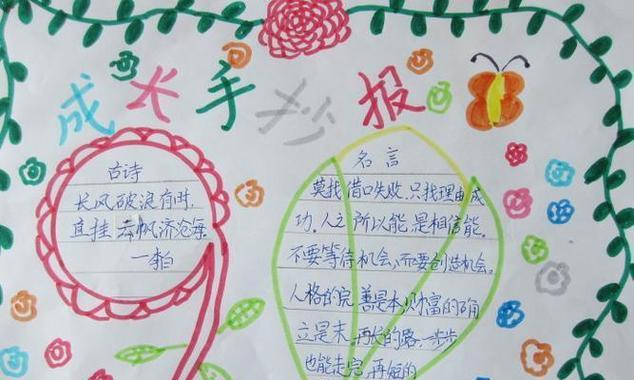 成长手抄报
古诗
长风破浪有时,
直挂云帆济沧海
—李白
名言
莫找借口失败,只找理由成
功.人之所以能,是相信能.
不要等待机会,而要创造机会.
人格的完善是本,财富的确
立是末,再长的路,一步步
也能走完,再短的